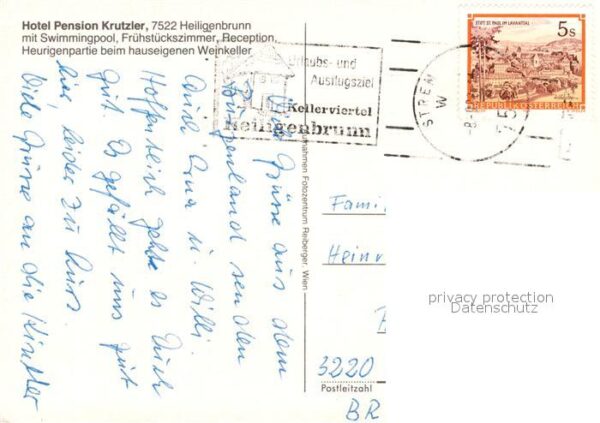 Hotel Pension Krutzler, 7522 Heiligenbrunn
mit Swimmingpool, Frühstückszimmer, Rezeption,
Heurigenpartie beim hauseigenen Weinkeller
Urlaubs- und
Ausflugsziel
Kellerviertel
Heiligenbrunn
STREM
STIFT ST. PAUL IM LAVANTTAL
5s
REPUBLIK ÖSTERREICH
Viele Grüße aus dem
Burgenland senden
Euch Erna u. Willi.
Hoffentlich geht es Euch
gut. Es gefällt uns gut
hier, leider zu kurz.
Viele Grüße an die Kinder
Aufnahmen Fotozentrum Reiberger, Wien
Fami
Heinr
3220
Postleitzahl
BR
privacy protection
Datenschutz